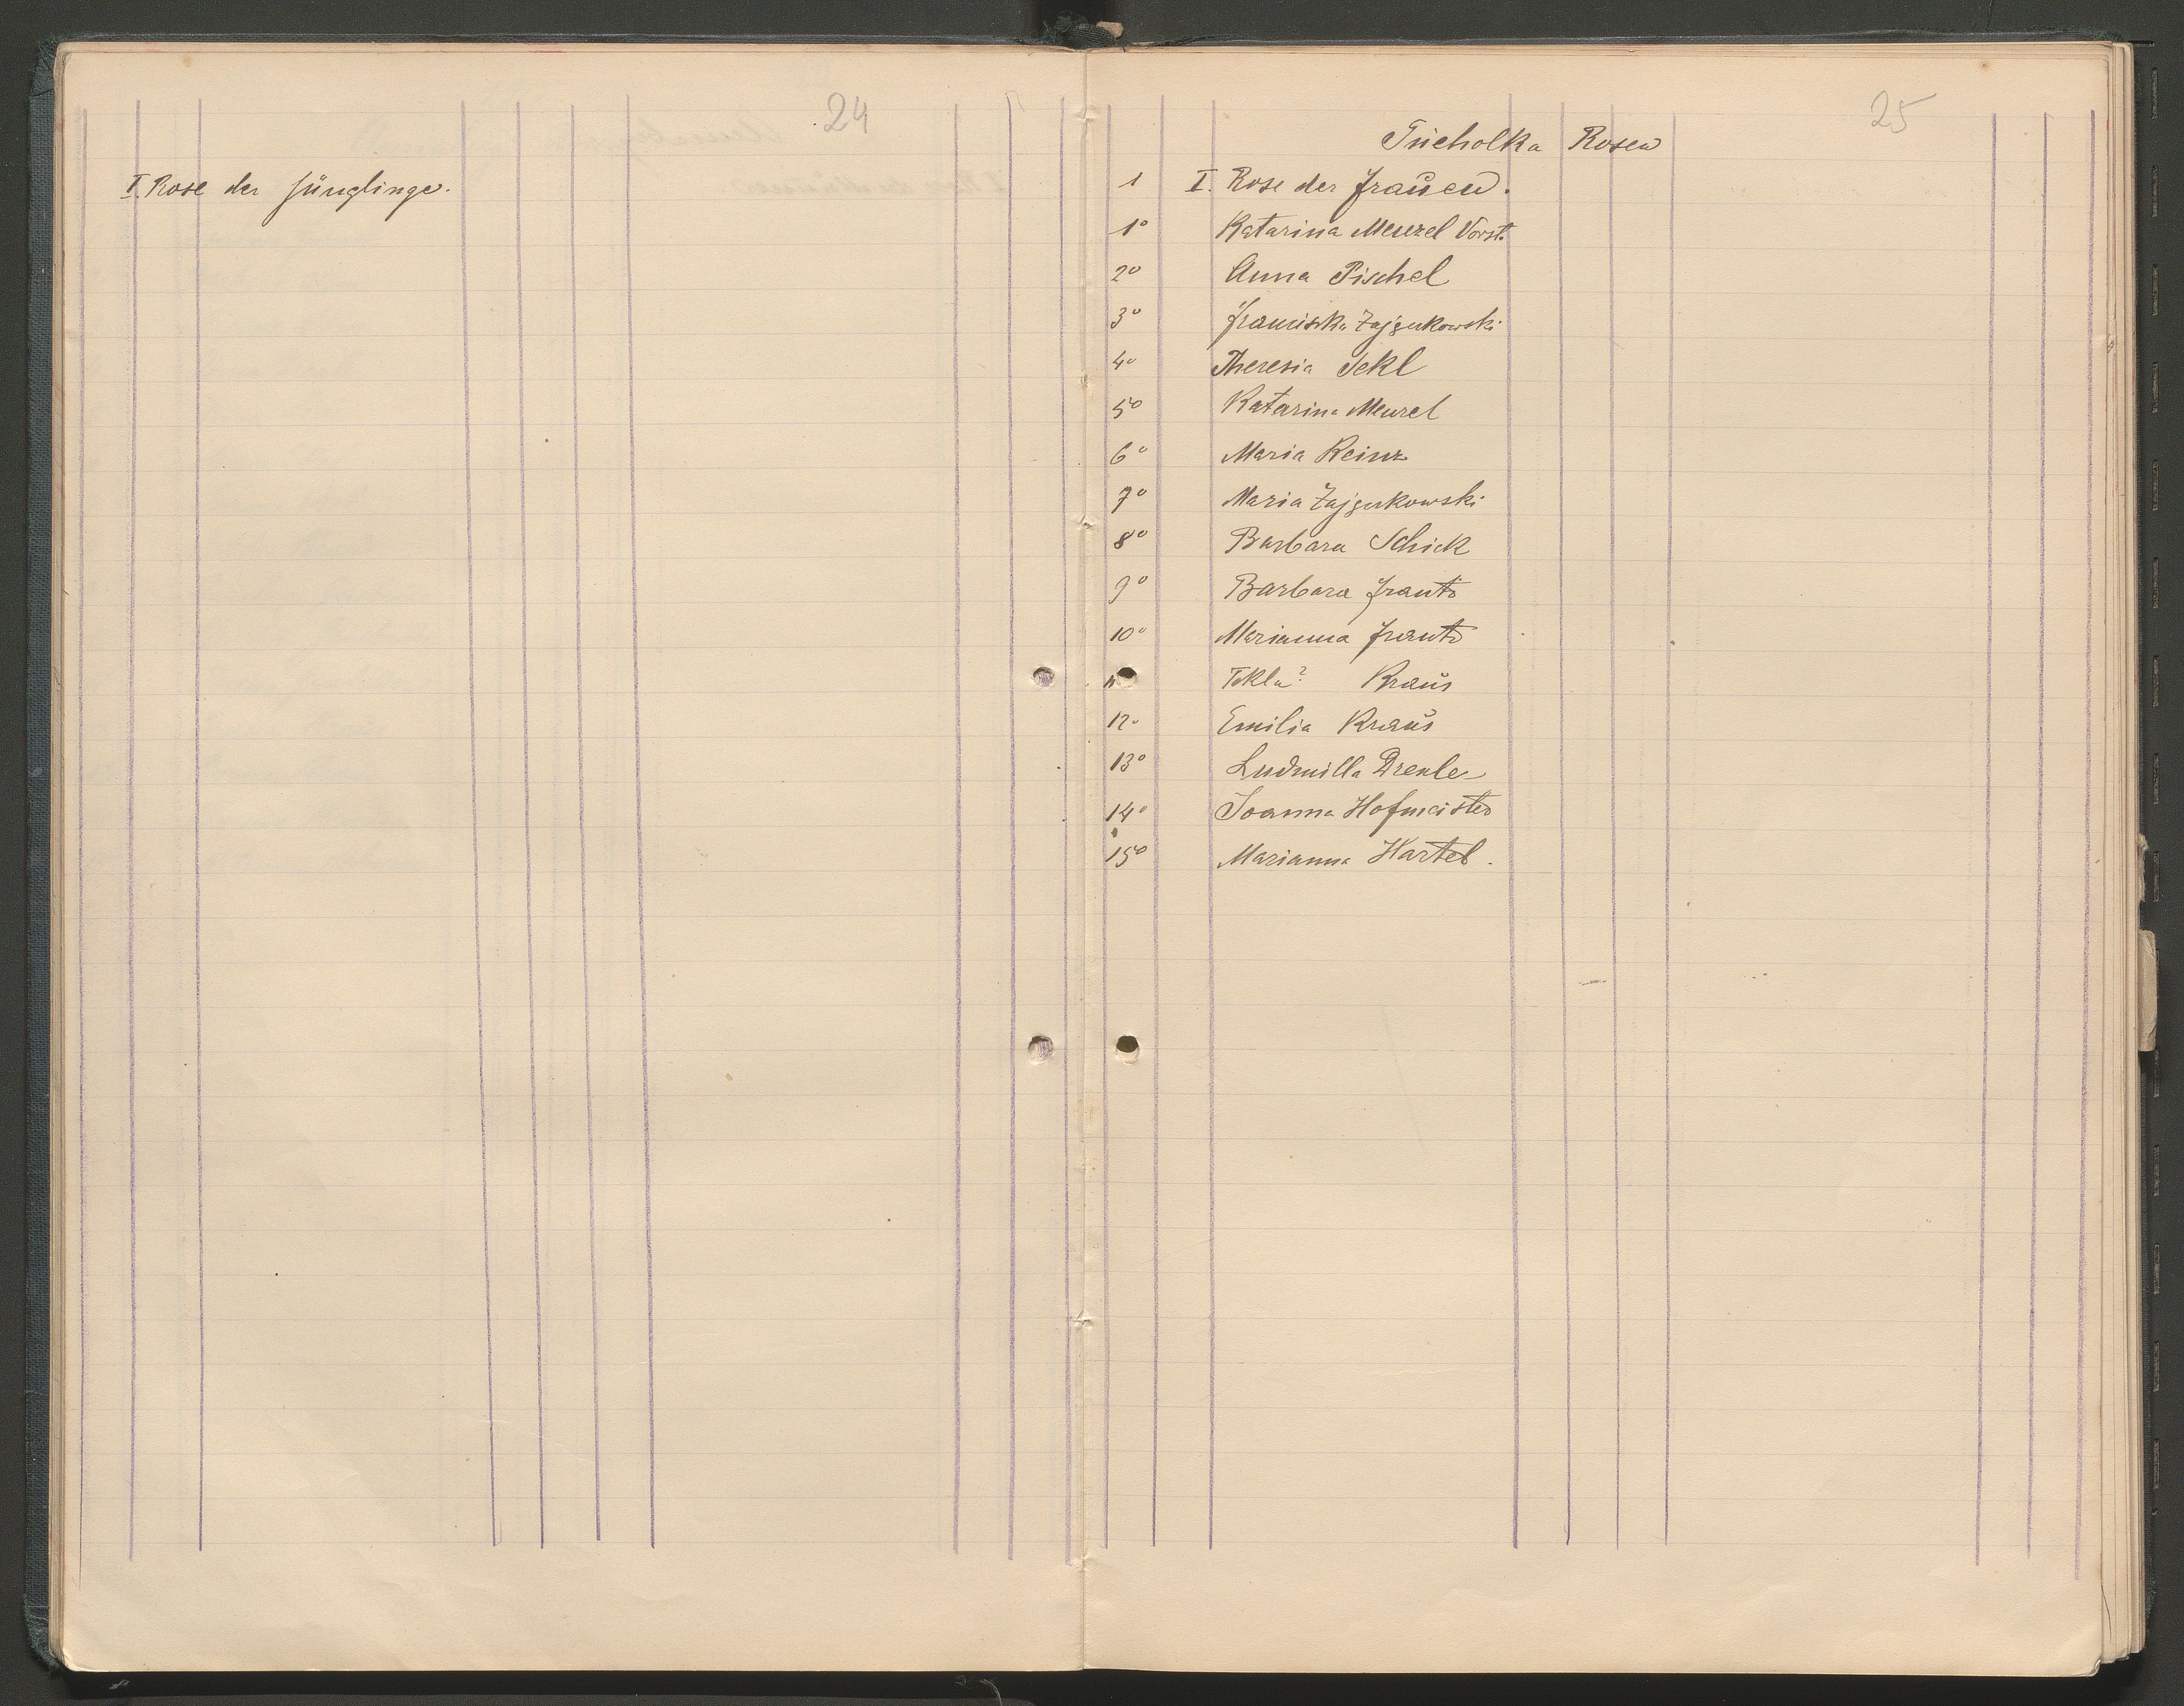 24
I. Rose der Jünglinge.
25
Tucholka Rosen
1 I. Rose der Frauen.
1º Katarina Menzel Vorst.
2º Anna Pischel
3º Franciska Zajzerkowski
4º Theresia Sekl
5º Katarina Menzel
6º Maria Reinz
7º Maria Zajzerkowski
8º Barbara Schick
9º Barbara Frantz
10º Marianna Frantz
11 Tekla? Kraus
12º Emilia Kraus
13º Ludmilla Drexler
14º Joanna Hofmeister
15º Marianna Hartel.